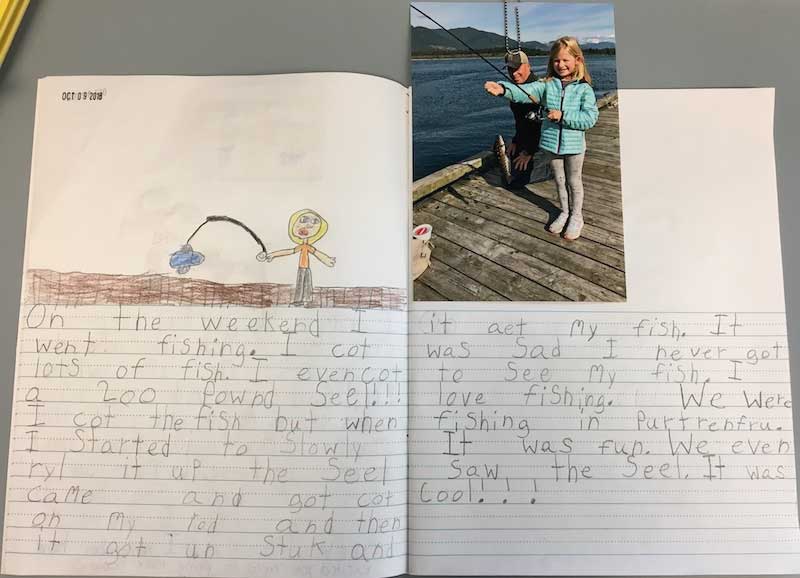 OCT 09 2018
On the weekend I
went fishing. I cot
lots of fish. I even cot
a 200 pownd Seel!!!
I cot the fish but when
I Started to Slowly
ryl it up the Seel
came and got cot
on my rod and then
it got un Stuk and
it aet my fish. It
was Sad I never got
to See my fish. I
love fishing. We were
fishing in Purtrenfru.
It was fun. We even
Saw the Seel. It was
Cool!!!